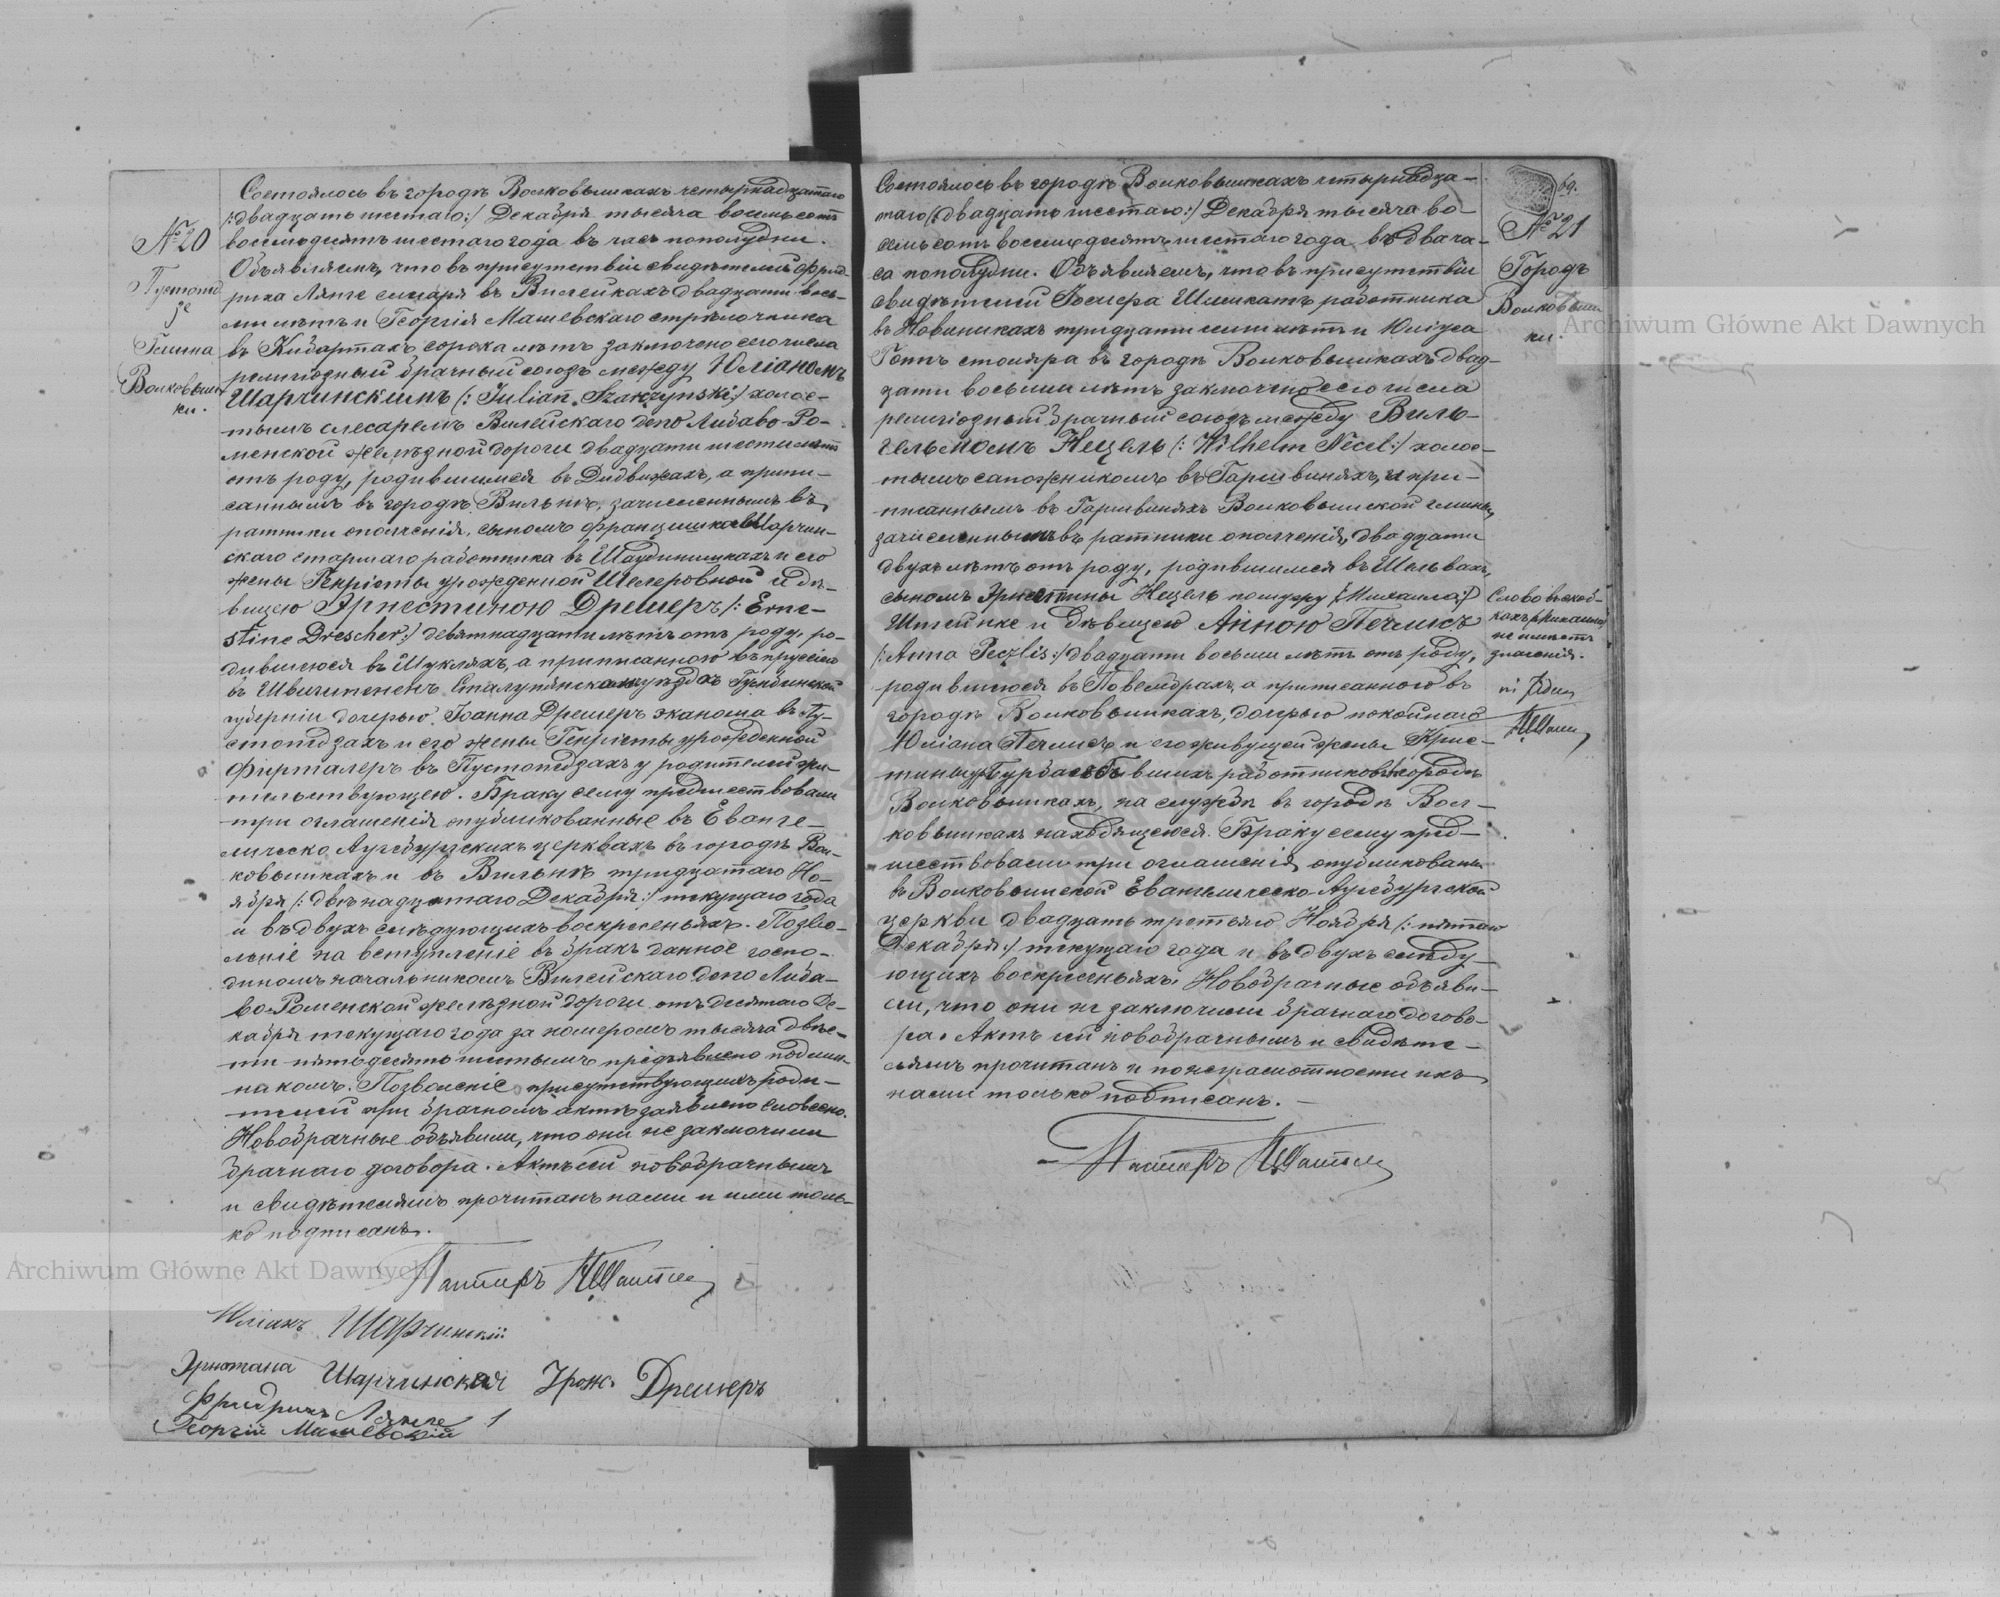 № 20
Пустопед
зе
Гмина
Волковыш
ки.
Состоялось въ городѣ Волковышкахъ четырнадцатаго
/: двадцать шестаго :/ Декабря тысяча восемьсотъ
восемьдесятъ шестаго года въ часъ пополудни.
Объявляемъ, что въ присутствіи свидѣтелей Фрид-
риха Лянге слесаря въ Вилейкахъ двадцати вось-
ми лѣтъ и Георгія Машевскаго стрѣлочника
въ Кибартахъ сорока лѣтъ заключено сего числа
религіозный брачный союзъ между Юліаномъ
Шарчинскимъ (: Julian Szarzynski :) холос-
тымъ слесаремъ Вилейскаго депо Либаво-Ро-
менской желѣзной дороги двадцати шести лѣтъ
отъ роду, родившимся въ Дидвижахъ, а припи-
саннымъ въ городѣ Вильнѣ, зачисленнымъ въ
ратники ополченія, сыномъ Францишка Шарчин-
скаго старшаго работника въ Шаудинишкахъ и его
жены Генріеты урожденной Шелеровной и дѣ-
вицею Эрнестиною Дрешеръ /: Erne-
stine Drescher :/ девятнадцати лѣтъ отъ роду, ро-
дившеюся въ Шукляхъ, а приписанною въ Пруссіи
въ Сталупянскомъ уѣздѣ Гумбинской
губерніи дочерью Іоанна Дрешеръ эканома въ Пу-
стопедзахъ и его жены Генріеты урожденной
Фирталеръ въ Пустопедзахъ у родителей жи-
тельствующею. Браку сему предшествовали
три оглашенія опубликованные въ Еванге-
лическо Аугсбургскихъ церквахъ въ городѣ Вол-
ковышкахъ и въ Вильнѣ тридцатаго Но-
ября /: двѣнадцатаго Декабря :/ текущаго года
и въ двухъ слѣдующихъ воскресеньяхъ. Позво-
леніе на вступленіе въ бракъ данное госпо-
диномъ начальникомъ Вилейскаго депо Либа-
во-Роменской желѣзной дороги отъ десятаго Де-
кабря текущаго года за номеромъ тысяча двѣс-
ти пятьдесятъ шестымъ предъявлено подлин-
накомъ. Позволеніе присутствующихъ роди-
телей при брачномъ актѣ заявлено словесно.
Новобрачные объявили, что они не заключили
брачнаго договора. Актъ сей новобрачнымъ
и свидѣтелямъ прочитанъ нами и ими толь-
ко подписанъ.
Пасторъ
Юліанъ Шарчинскій
Эрнстина Шарчинская Урож. Дрешеръ
Фридрихъ Лянге
Георгій Машевскій
69.
№ 21
Городъ
Волковыш
ки.
Состоялось въ городѣ Волковышкахъ четырнадца-
таго (: двадцать шестаго :) Декабря тысяча во-
семьсотъ восемьдесятъ шестаго года въ два ча-
са пополудни. Объявляемъ, что въ присутствіи
свидѣтелей работника
въ Новиникахъ тридцати семи лѣтъ и Юліуса
Готъ столяра въ городѣ Волковышкахъ двад-
цати восьми лѣтъ заключено сего числа
религіозный брачный союзъ между Виль-
гельмомъ Нецель (: Wilhelm Necel :) холос-
тымъ сапожникомъ въ Гаршвиняхъ, и при-
писаннымъ въ Гаршвиняхъ Волковышской гмины,
зачисленнымъ въ ратники ополченія, двадцати
двухъ лѣтъ отъ роду, родившимся въ Шельвахъ,
сыномъ Эрнестины Нецель (: Михаила :)
Штейнке и дѣвицею Анною Печлисъ
/: Anna Peczlis :/ двадцати восьми лѣтъ отъ роду,
родившеюся въ Повембрахъ, а приписанною въ
городѣ Волковышкахъ, дочерью покойнаго
Юліана Печлисъ и его живущей жены Крис-
тины бывшихъ работниковъ въ городѣ
Волковышкахъ, на службѣ въ городѣ Вол-
ковышкахъ находящеюся. Браку сему пред-
шествовали три оглашенія опубликованы
въ Волковышской Евангелическо-Аугсбургской
церкви двадцать третьяго Ноября /: пятаго
Декабря :/ текущаго года и въ двухъ слѣду-
ющихъ воскресеньяхъ. Новобрачные объяви-
ли, что они не заключили брачнаго догово-
ра. Актъ сей новобрачнымъ и свидѣте-
лямъ прочитанъ и по неграмотности ихъ
нами только подписанъ.
Пасторъ
Слово въ скоб-
кахъ Михаила
не имѣетъ
значенія.
Archiwum Główne Akt Dawnych
Archiwum Główne Akt Dawnych